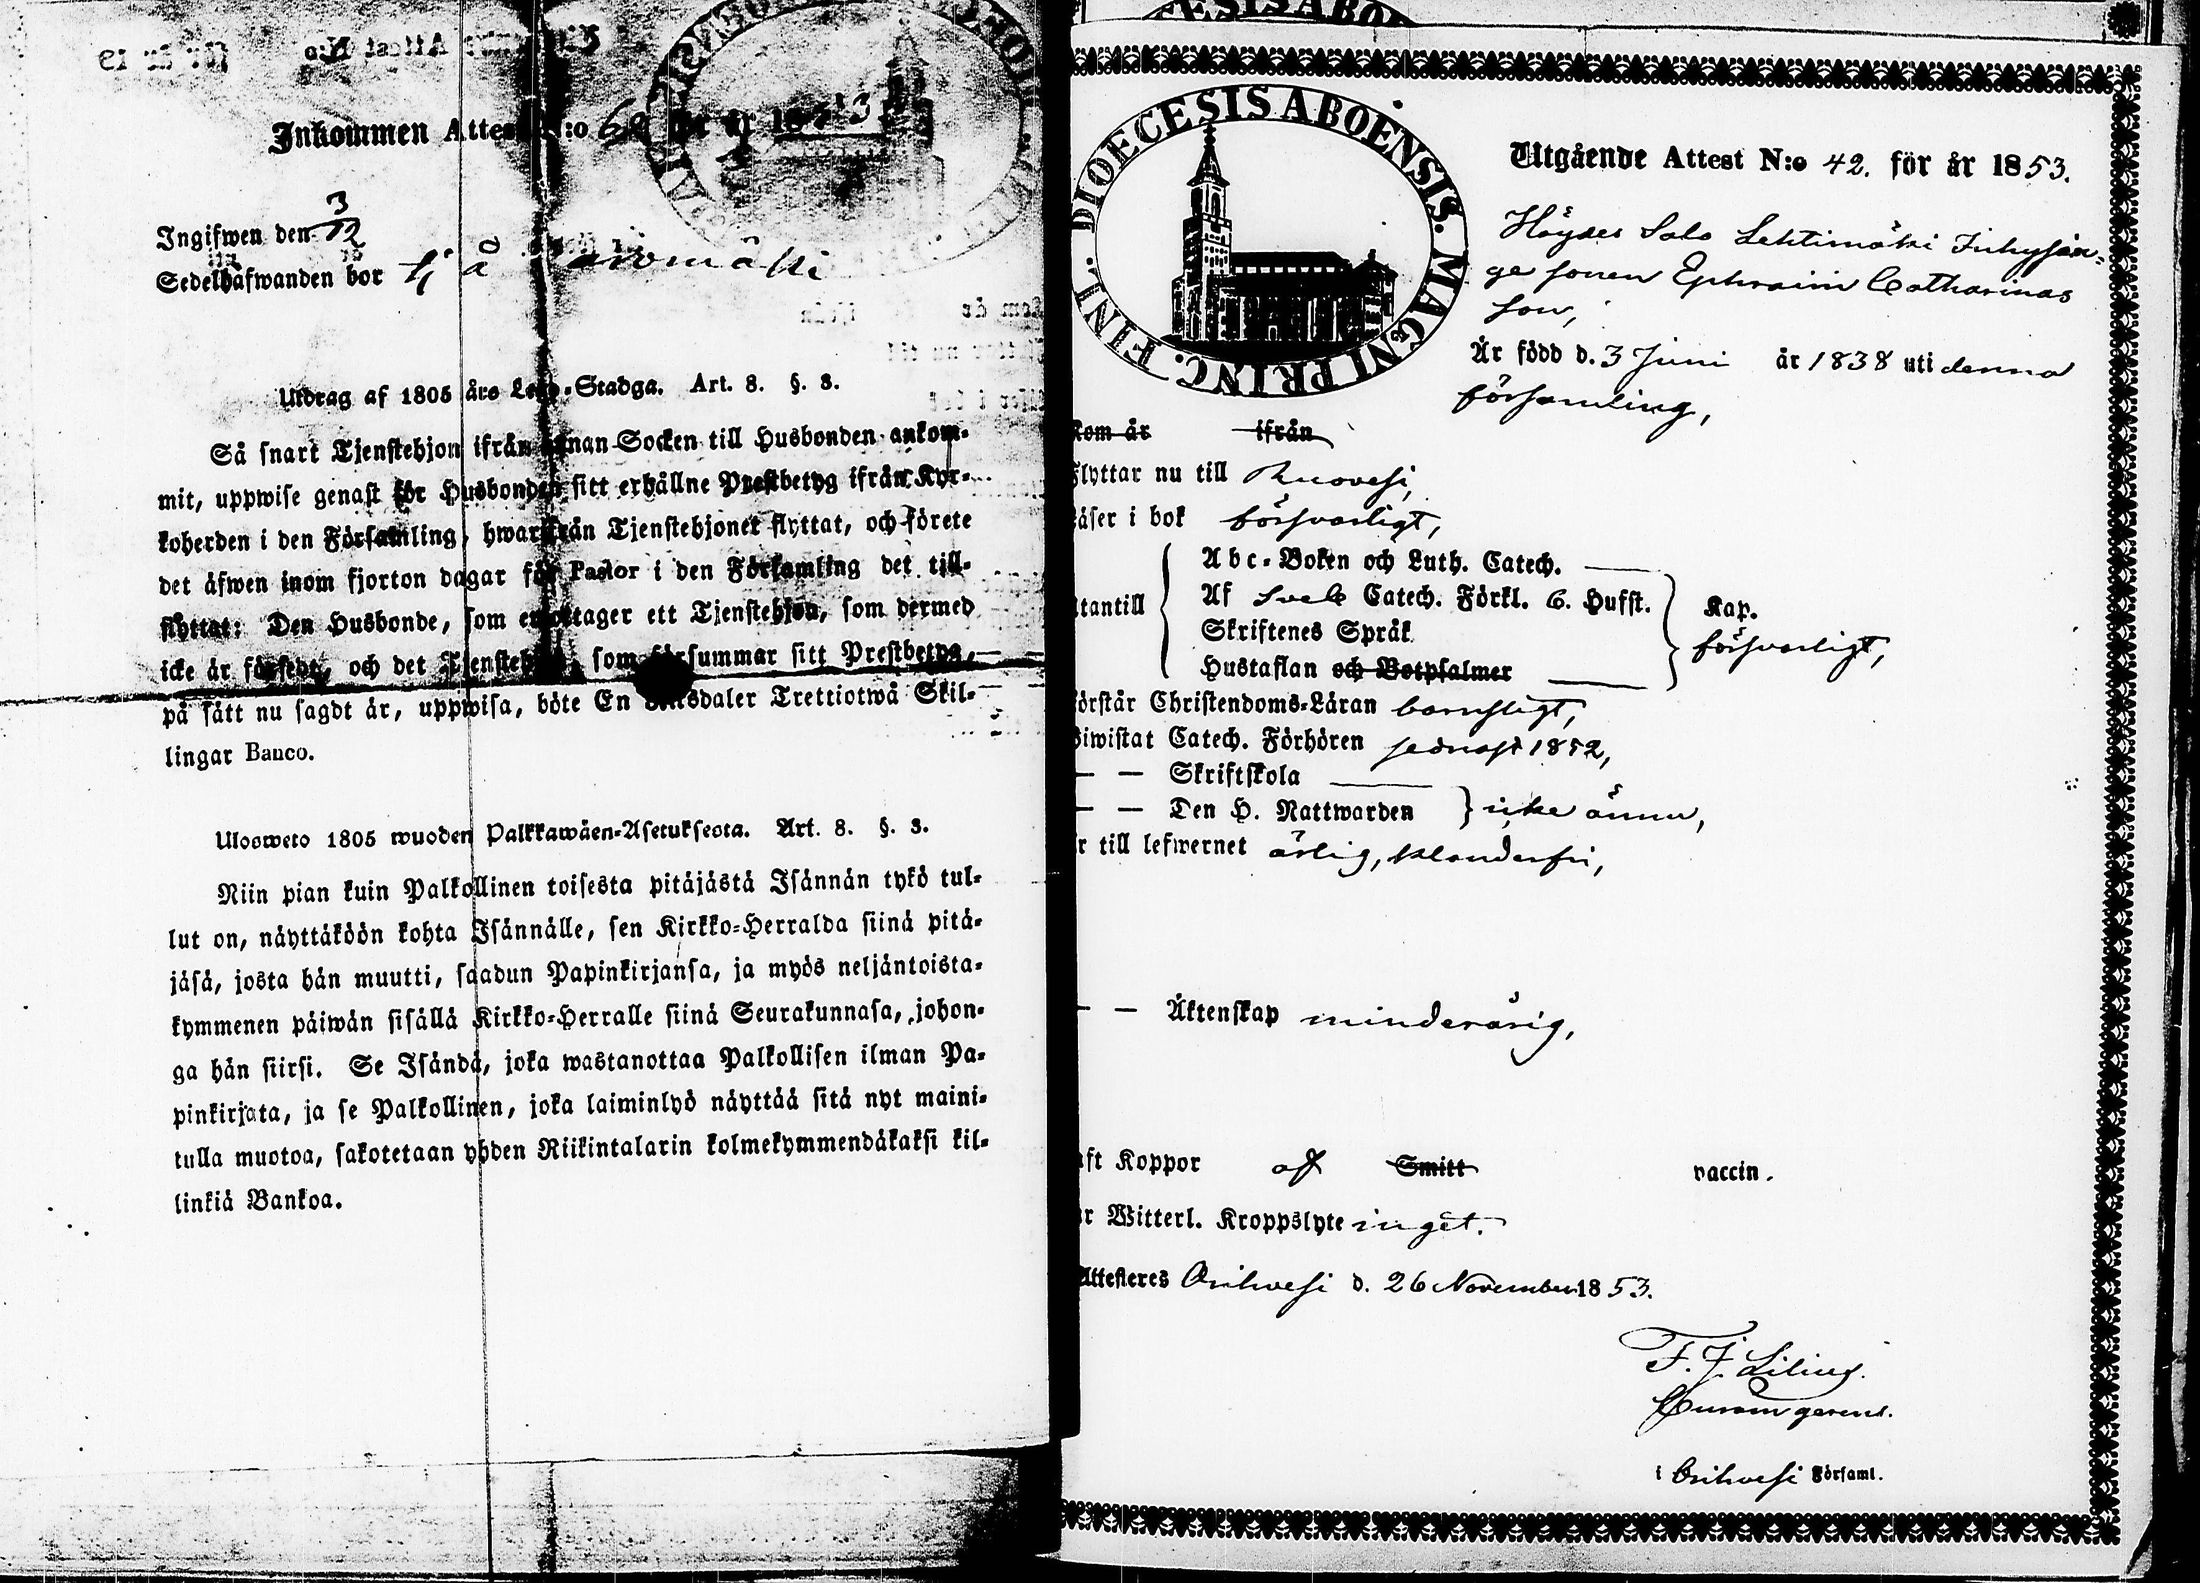 Inkommen Attest N:o
Ingifwen den 3/12
Sedelhafwanden bor
Utdrag af 1805 års Lego-Stadga. Art. 8. §. 3.
Så snart Tjenstehjon ifrån annan Socken till Husbonden ankom-
mit, uppwise genast för Husbonden sitt erhållne Prestbetyg ifrån Kyr-
koherden i den Församling, hwarifrån Tjenstehjonet flyttat, och förete
det äfwen inom fjorton dagar för Pastor i den Församling det till-
flyttat: Den Husbonde, som emottager ett Tjenstehjon, som dermed
icke är försedt, och det Tjenstehjon, som försummar sitt Prestbetyg,
på sätt nu sagdt är, uppwisa, böte En Riksdaler Trettiotwå Skil-
lingar Banco.
Ulosweto 1805 wuoden Palkkawäen-Asetuksesta. Art. 8. §. 3.
Niin pian kuin Palkollinen toisesta pitäjästä Isännän tykö tul-
lut on, näyttäköön kohta Isännälle, sen Kirkko-Herralda siinä pitä-
jäsä, josta hän muutti, saadun Papinkirjansa, ja myös neljäntoista-
kymmenen päiwän sisällä Kirkko-Herralle siinä Seurakunnasa, johon-
ga hän siirsi. Se Isändä, joka wastanottaa Palkollisen ilman Pa-
pinkirjata, ja se Palkollinen, joka laiminlyö näyttää sitä nyt maini-
tulla muotoa, sakotetaan yhden Riikintalarin kolmekymmendäkaksi kil-
linkiä Bankoa.
DIOECESIS ABOENSIS. MAGNI PRINC. FINL.
Utgående Attest N:o 42. för år 1853.
Höydes Salo Lehtimäki Inhysin-
ge sonen Ephraim Catharinas
son,
Är född d. 3 Juni år 1838 uti denna
församling,
Kom år ifrån
Flyttar nu till Ruovesi,
Läser i bok försvarligt,
Utantill
Abc-Boken och Luth. Catech.
Af Sveb Catech. Förkl. 6. Hufst.
Skriftenes Språk
Hustaflan och Botpsalmer
Kap.
försvarligt,
Förstår Christendoms-Läran barnsligt,
Biwistat Catech. Förhören sednast 1852,
— — Skriftskola
— — Den H. Nattwarden } icke ännu,
Är till lefwernet ärlig, klanderfri,
— — Äktenskap minderårig,
Haft Koppor af Smitt vaccin.
Har Witterl. Kroppslyte inget.
Attesteres Orihvesi d. 26 November 1853.
F. J. Lilius.
Curam gerens.
i Orihvesi Församl.